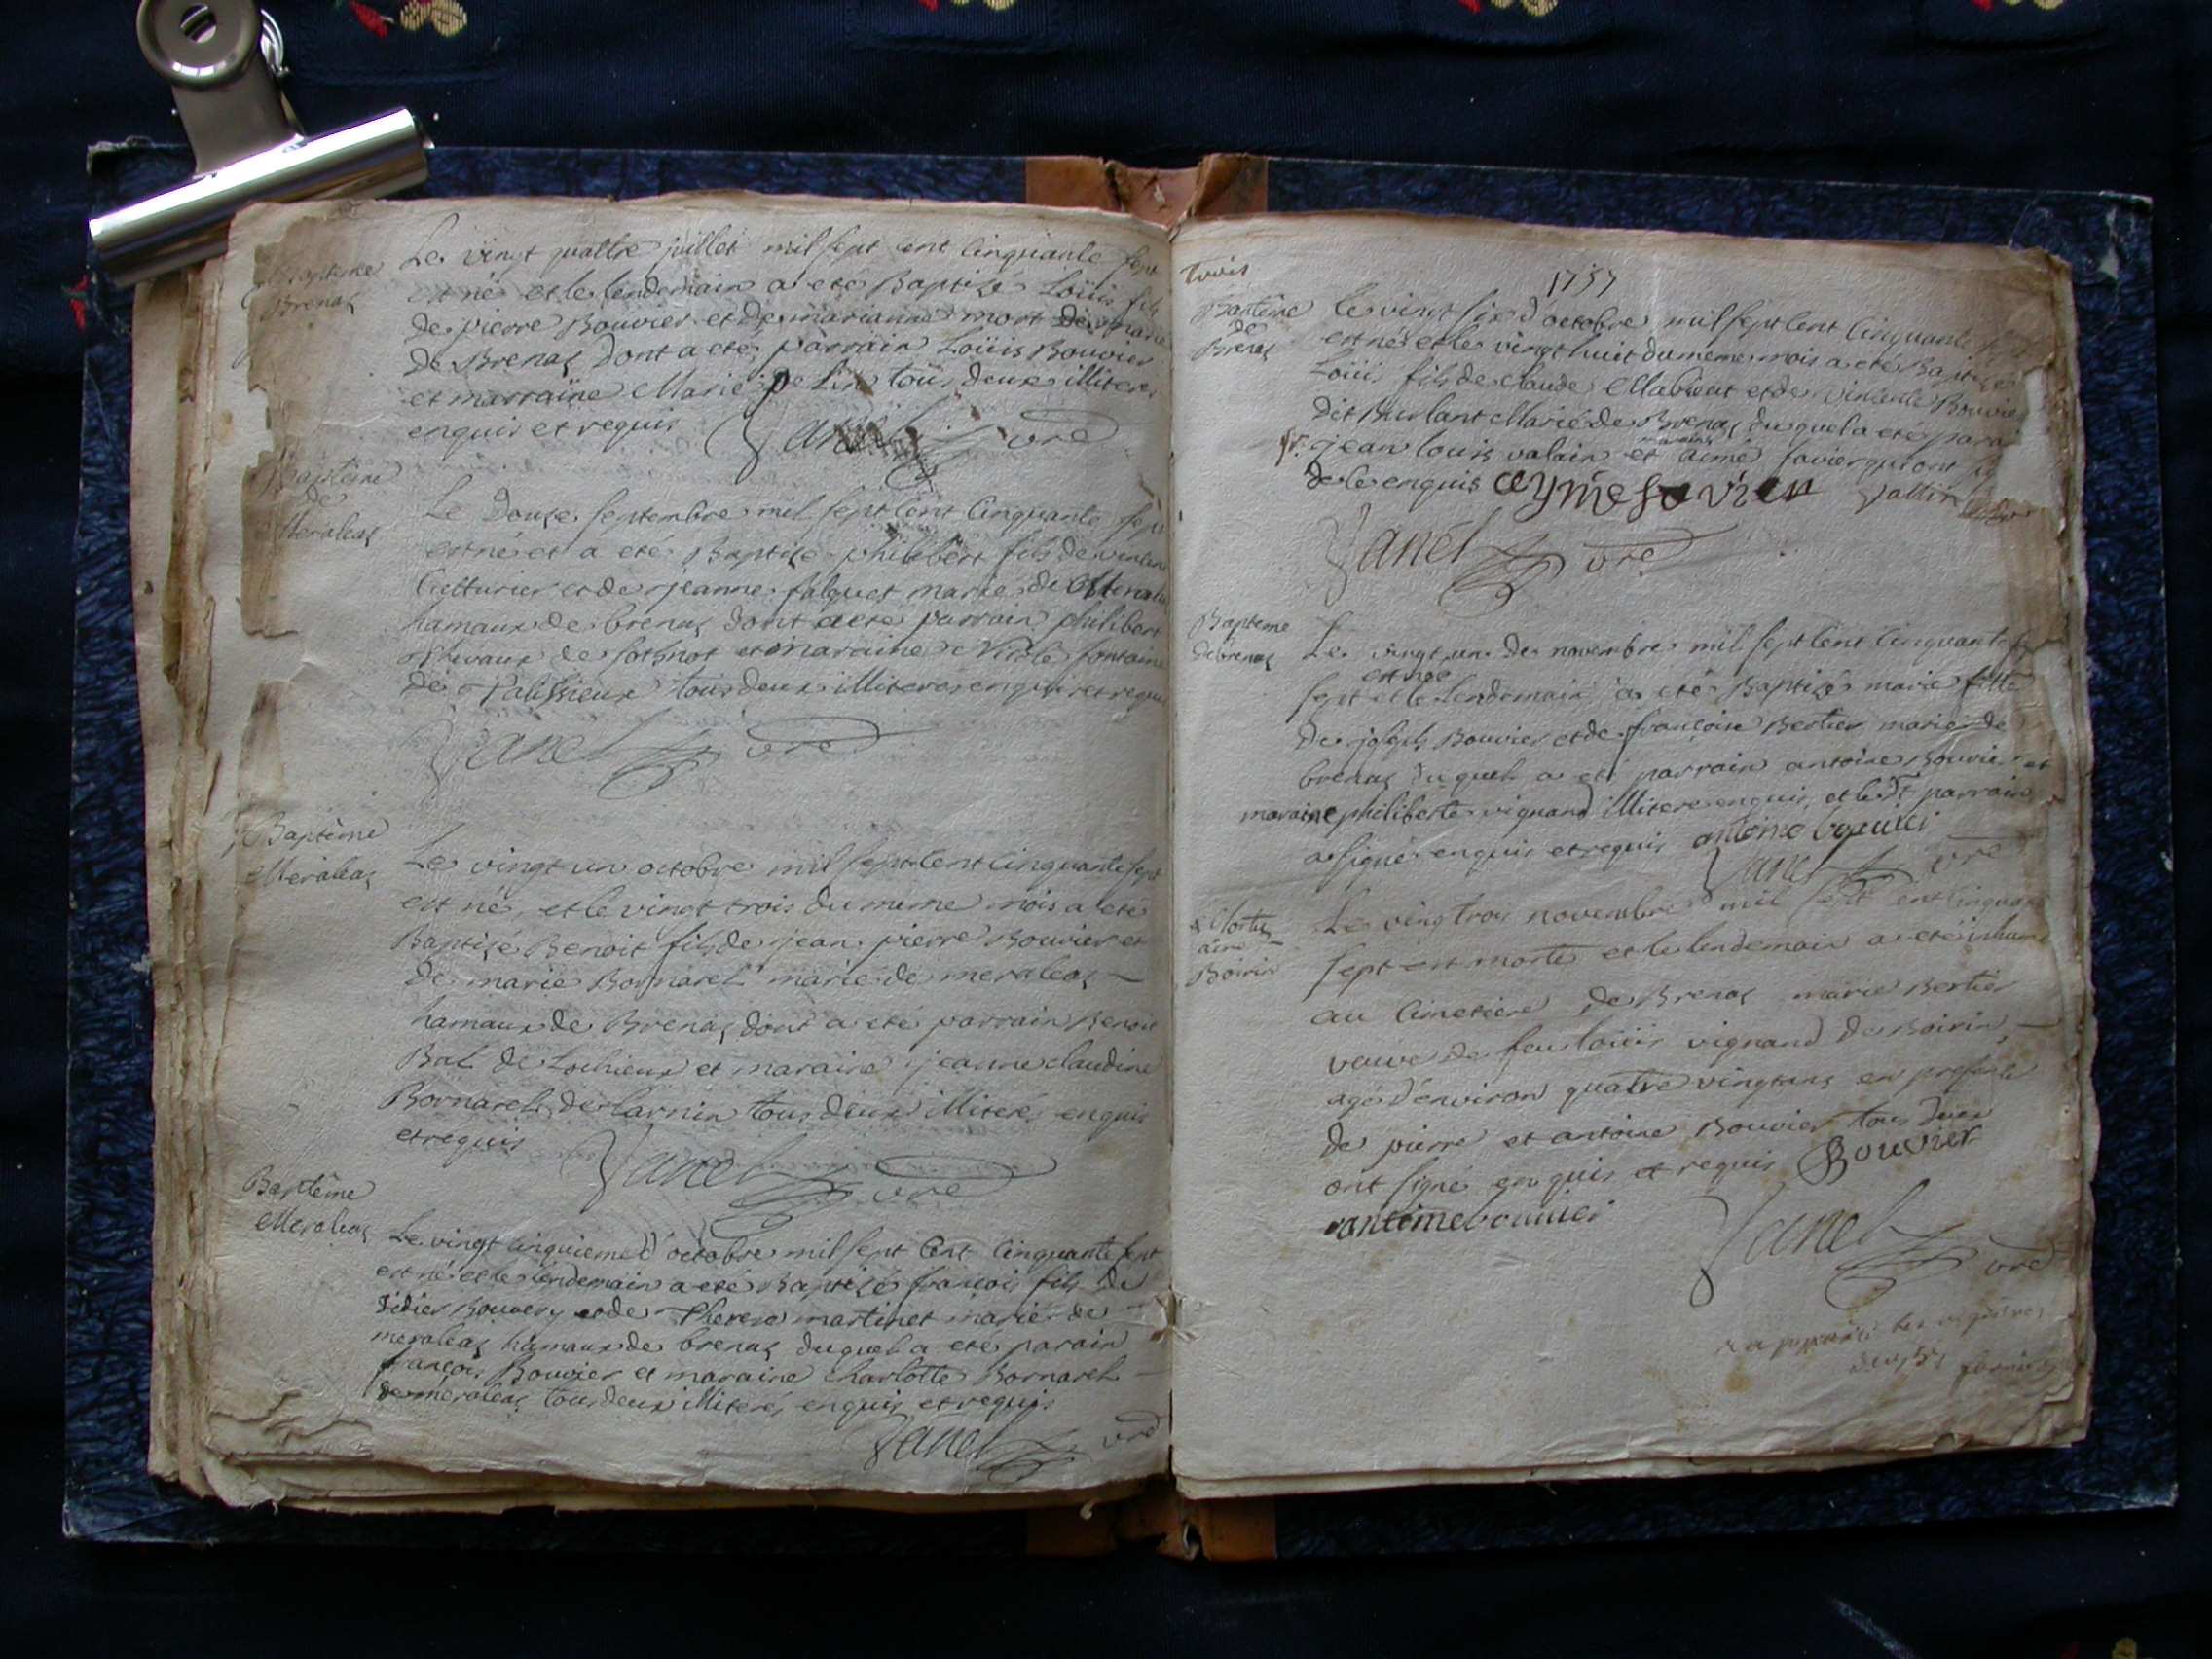 Bapteme
Brenas
Le vingt quattre juillet mil sept cent cinquante sept
est né et le lendemain a eté Baptizé Loüis fils
de pierre Bouvier et de marianne mort de marié
de Brenas dont a eté parrain Loüis Bouvier
et marraine Marie pelin tous deux illiteres
enquis et requis Janel vre
Baptême
de
Meraleas
Le Douze septembre mil sept cent cinquante sept
est né et a eté Baptizé philibert fils de vincen
Cutturier et de jeanne falquet marié de
hamaux de brenas dont a eté parrain philibert
de et maraine Nicole fontaine
de Palissieux tous deux illiteres enquis et requis
Janel vre
Baptême
Meraleas
Le vingt un octobre mil sept cent cinquante sept
est né, et le vingt trois du meme mois a eté
Baptizé Benoit fils de jean pierre Bouvier et
de marie Bornarel marié de meraleas
hamaux de Brenas dont a eté parrain Benoit
Bal de Lochieux et maraine jeanne claudine
Bornarel de Larnin tous deux illiteré enquis
et requis Janel vre
Baptême
Meraleas
Le vingt cinquieme d'octobre mil sept cent cinquante sept
est né et le lendemain a eté Baptizé françois fils de
didier Bouvery et de Therese martinet marié de
meraleas hamaux de brenas duquel a eté parain
françois Bouvier et maraine charlotte Bornarel
de meraleas tous deux illiterés enquis et requis
Janel vre
trois
1757
Baptême
de
Brenas
Le vingt six d'octobre mil sept cent cinquante sept
est né et le vingt huit du meme mois a eté Baptizé
Loüis fils de claude Mabiout et de vincente Bouvier
dit Burlant Marié de Brenas duquel a eté parai
sr. jean louis valain et maraine aimé favier qui ont
de le enquis aymé favier vallin
Janel vre
Bapteme
de brenas
Le vingt un de novembre mil sept cent cinquante
est née
sept et le lendemain a eté Baptizé marie fille
De joseph Bouvier et de françoise Bertier marié de
brenas duquel a eté parrain antoine Bouvier et
maraine philiberte vignand illitere enquis, et le dt parrain
a signé enquis et requis antoine bouvier
Janel vre
Mortu
aire
Boirin
Le vingt trois novembre mil sept cent cinquante
sept est morte et le lendemain a eté inhumé
au cimetiere de Brenas marie Bertier
veuve de feu loüis vignand de Boirin,
agé d'environ quatre vingt ans en presence
de pierre et antoine Bouvier tous deux
ont signé enquis et requis Bouvier
antoine bouvier
Janel
vre